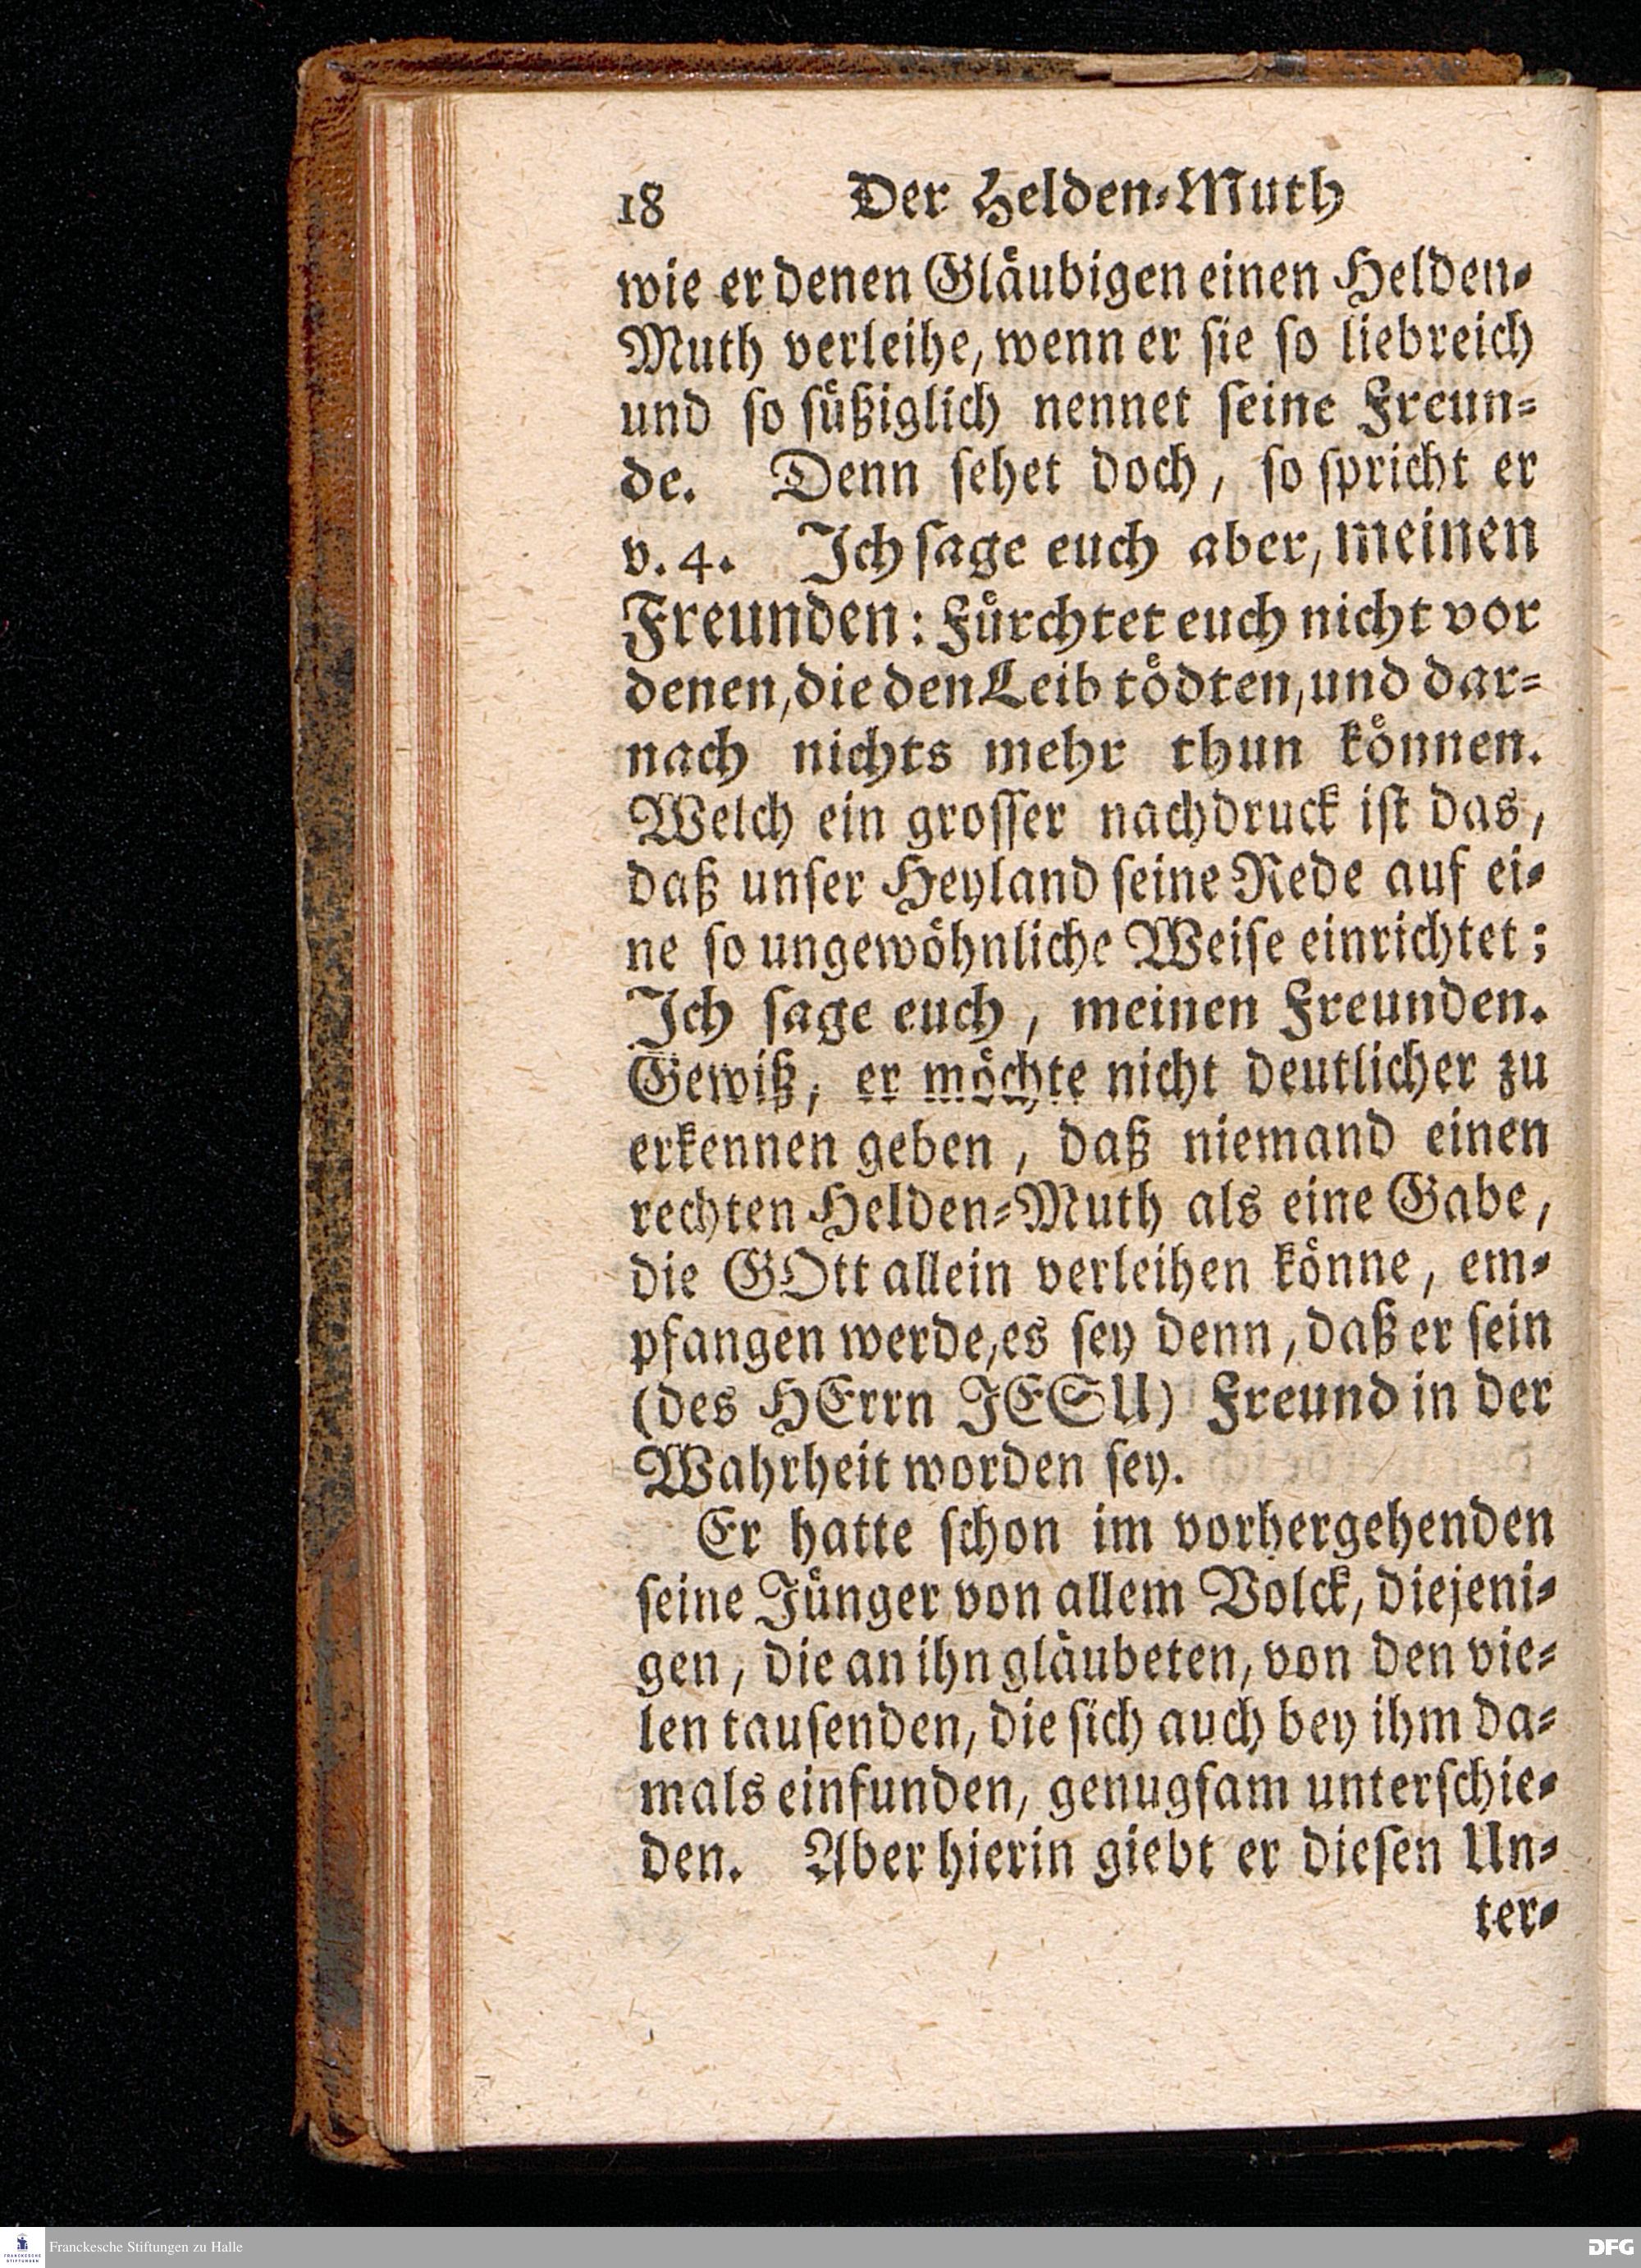 18 Der Helden-Muth
wie er denen Gläubigen einen Helden-
Muth verleihe, wenn er sie so liebreich
und so süßiglich nennet seine Freun-
de. Denn sehet doch, so spricht er
v. 4. Ich sage euch aber, meinen
Freunden: Fürchtet euch nicht vor
denen, die den Leib tödten, und dar-
nach nichts mehr thun können.
Welch ein grosser nachdruck ist das,
daß unser Heyland seine Rede auf ei-
ne so ungewöhnliche Weise einrichtet;
Ich sage euch, meinen Freunden.
Gewiß, er möchte nicht deutlicher zu
erkennen geben, daß niemand einen
rechten Helden-Muth als eine Gabe,
die GOtt allein verleihen könne, em-
pfangen werde, es sey denn, daß er sein
(des HErrn JESU) Freund in der
Wahrheit worden sey.
Er hatte schon im vorhergehenden
seine Jünger von allem Volck, diejeni-
gen, die an ihn gläubeten, von den vie-
len tausenden, die sich auch bey ihm da-
mals einfunden, genugsam unterschie-
den. Aber hierin giebt er diesen Un-
ter-
FRANCKESCHE STIFTUNGEN
Franckesche Stiftungen zu Halle
DFG